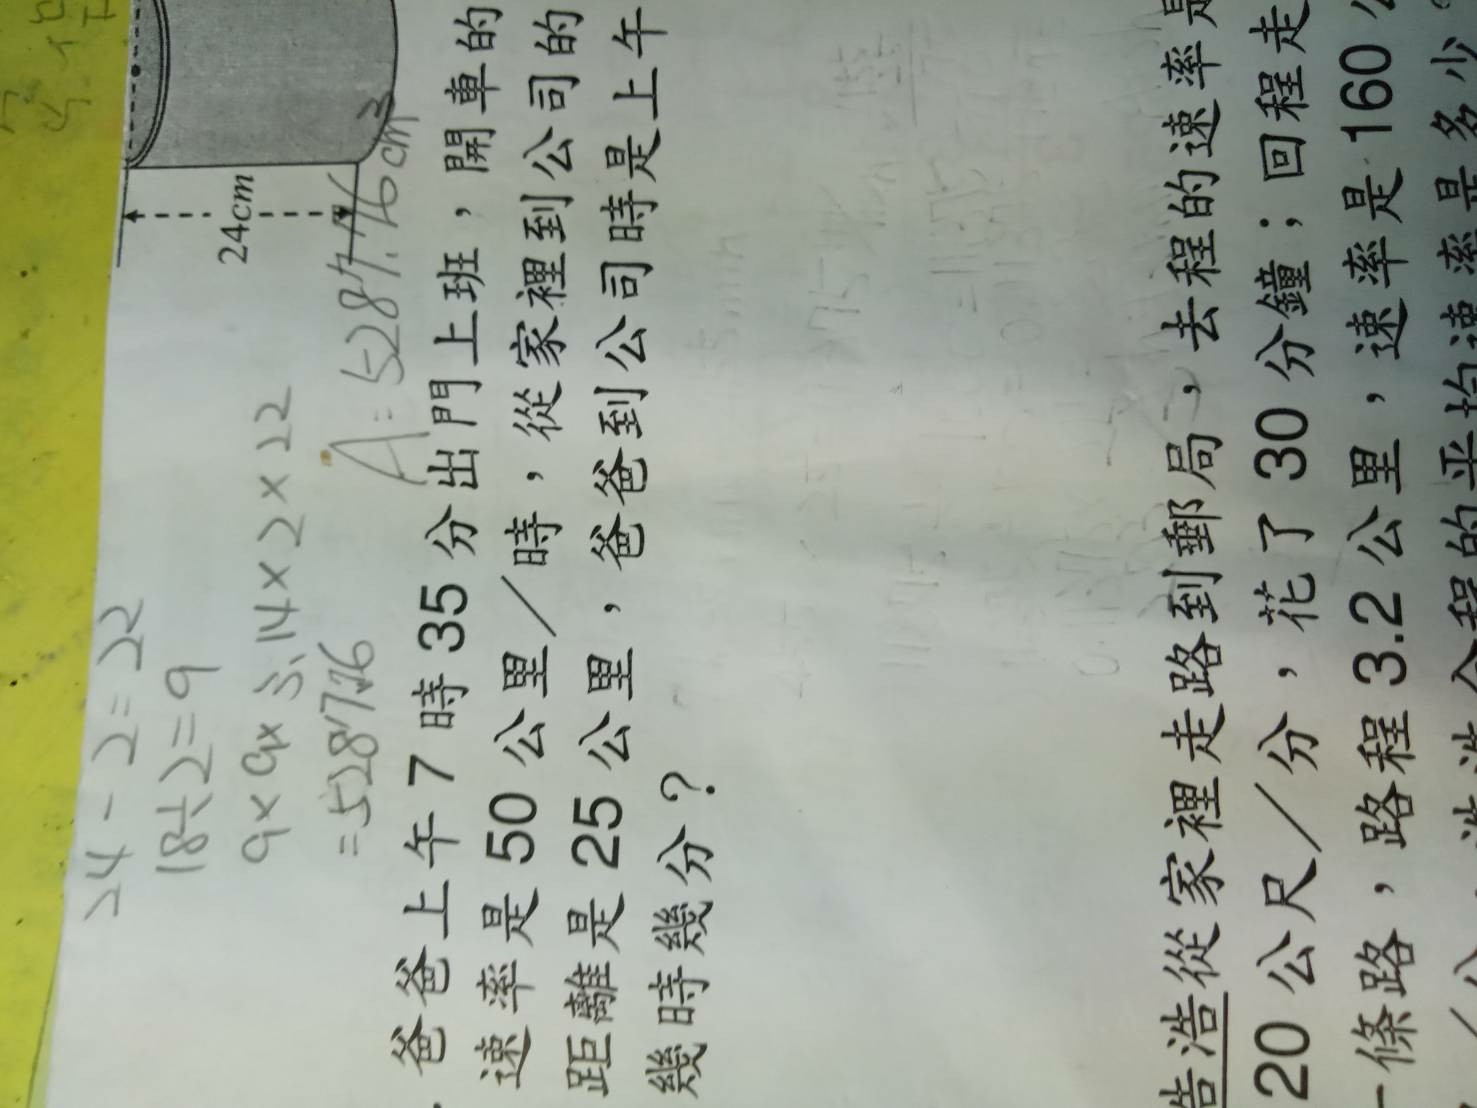 24cm
24-2=22
18÷2=9
9×9×3.14×2×22
=5287.76
A:5287.76cm³
爸爸上午7時35分出門上班，開車的
速率是50公里／時，從家裡到公司的
距離是25公里，爸爸到公司時是上午
幾時幾分？
浩從家裡走路到郵局，去程的速率是
20公尺／分，花了30分鐘；回程走
一條路，路程3.2公里，速率是160公
的平均速率是多少